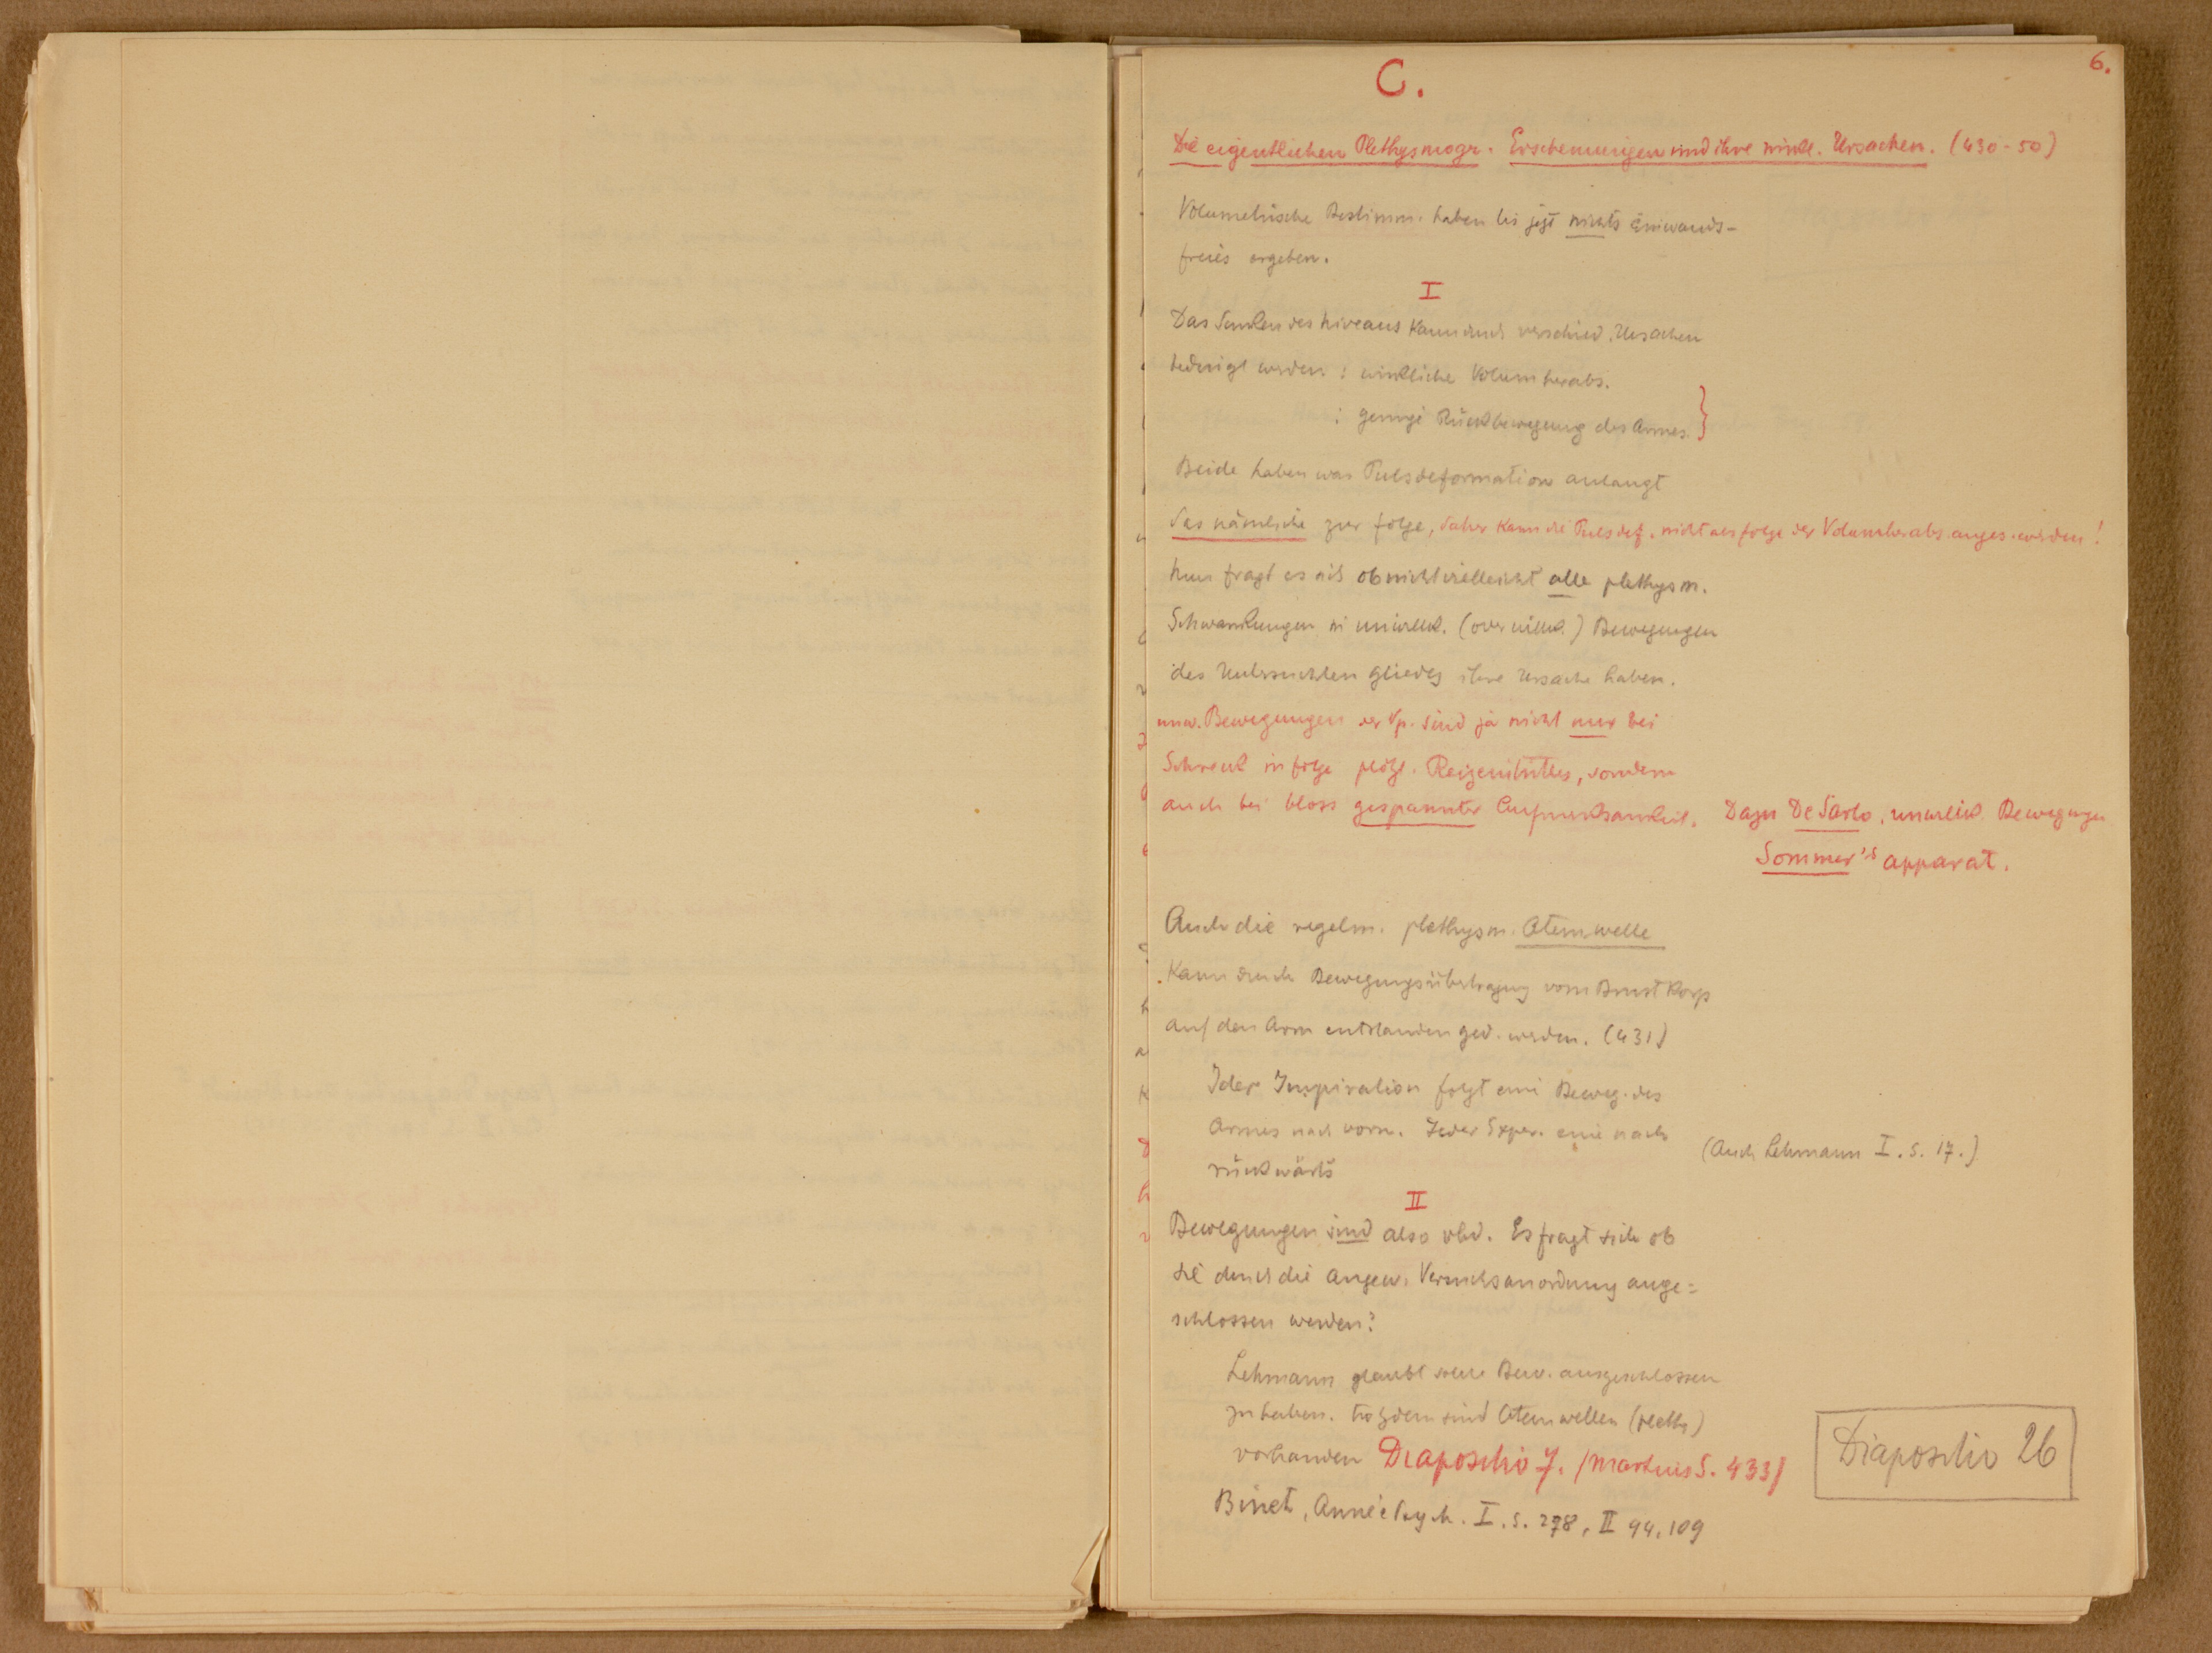 6.
C.
Die eigentlichen Plethysmogr. Erscheinungen und ihre wirkl. Ursachen. (430-50)
Volumetrische Bestimm. haben bis jezt nichts Einwands-
freies ergeben.
I
Das Sinken des Niveaus kann durch verschied. Ursachen
bedingt werden : wirkliche Volumherabs.
: geringe Rückbewegung des Armes. }
Beide haben was Pulsdeformation anlangt
das nämliche zur folge, daher kann die Pulsdef. nicht als folge der Volumherabs. anges. werden!
Nun fragt es sich ob nicht vielleicht alle plethysm.
Schwankungen in unwillk. (oder willk.) Bewegungen
des Untersuchten Gliedes ihre Ursache haben.
unw. Bewegungen der Vp. sind ja nicht nur bei
Schreck infolge plözl. Reizeintrittes, sondern
auch bei bloss gespannter Aufmerksamkeit. Dazu De Sarlo, unwillk. Bewegungen
Sommer's apparat.
Auch die regelm. plethysm. Atemwelle
kann durch Bewegungsübertragung vom Brustkorp
auf den Arm entstanden ged. werden. (431)
Jder Inspiration folgt eine Beweg. des
Armes nach vorn. Jeder Exper. eine nach
rückwärts
(Auch Lehmann I. S. 17.)
II
Bewegungen sind also vhd. Es fragt sich ob
sie durch die angew. Versuchsanordnung ange=
schlossen werden?
Lehmann glaubt solche Bew. ausgeschlossen
zu haben. trozdem sind Atemwellen (pleth)
vorhanden Diapositiv 7. (Martius S. 433)
Binet, Année Psych. I. S. 278, II 94, 109
Diapositiv 26